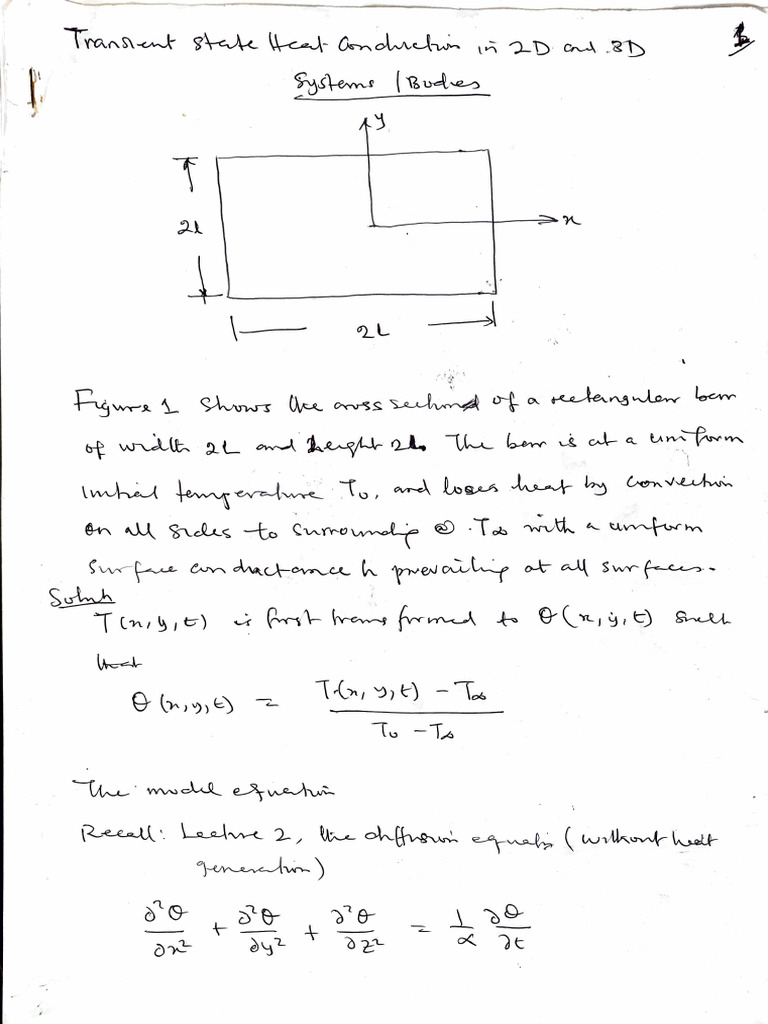 Transient State Heat Conduction in 2D and 3D
1
Systems / Bodies
y
x
2l
2L
Figure 1 shows the cross section of a rectangular bar
of width 2L and height 2l. The bar is at a uniform
initial temperature T₀, and loses heat by convection
on all sides to surrounding @ T∞ with a uniform
surface conductance h prevailing at all surfaces.
Soluth
T(x, y, t) is first transformed to θ(x, y, t) such
that
θ(x, y, t) = (T(x, y, t) − T∞) / (T₀ − T∞)
The model equation
Recall: Lecture 2, the diffusion equatn (without heat
generation)
∂²θ/∂x² + ∂²θ/∂y² + ∂²θ/∂z² = 1/α ∂θ/∂t